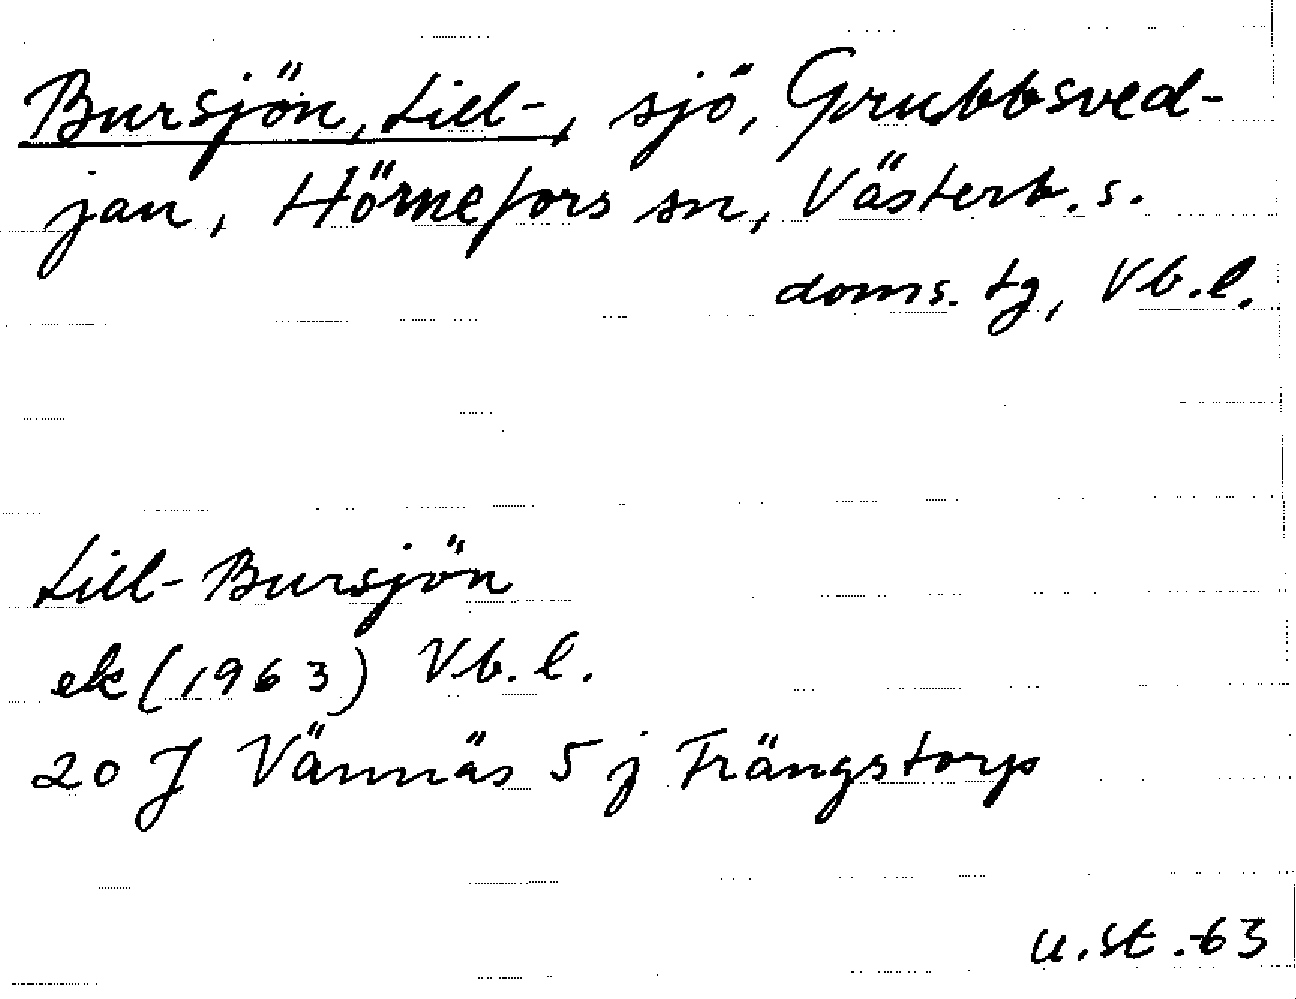 Bursjön, Lill-, sjö, Grubbsved-
jan, Hörnefors sn, Västerb. s.
doms. tg, Vb. l.
Lill-Bursjön
ek (1963) Vb. l.
20 J Vännäs 5 j Trängstorp
U. St. -63